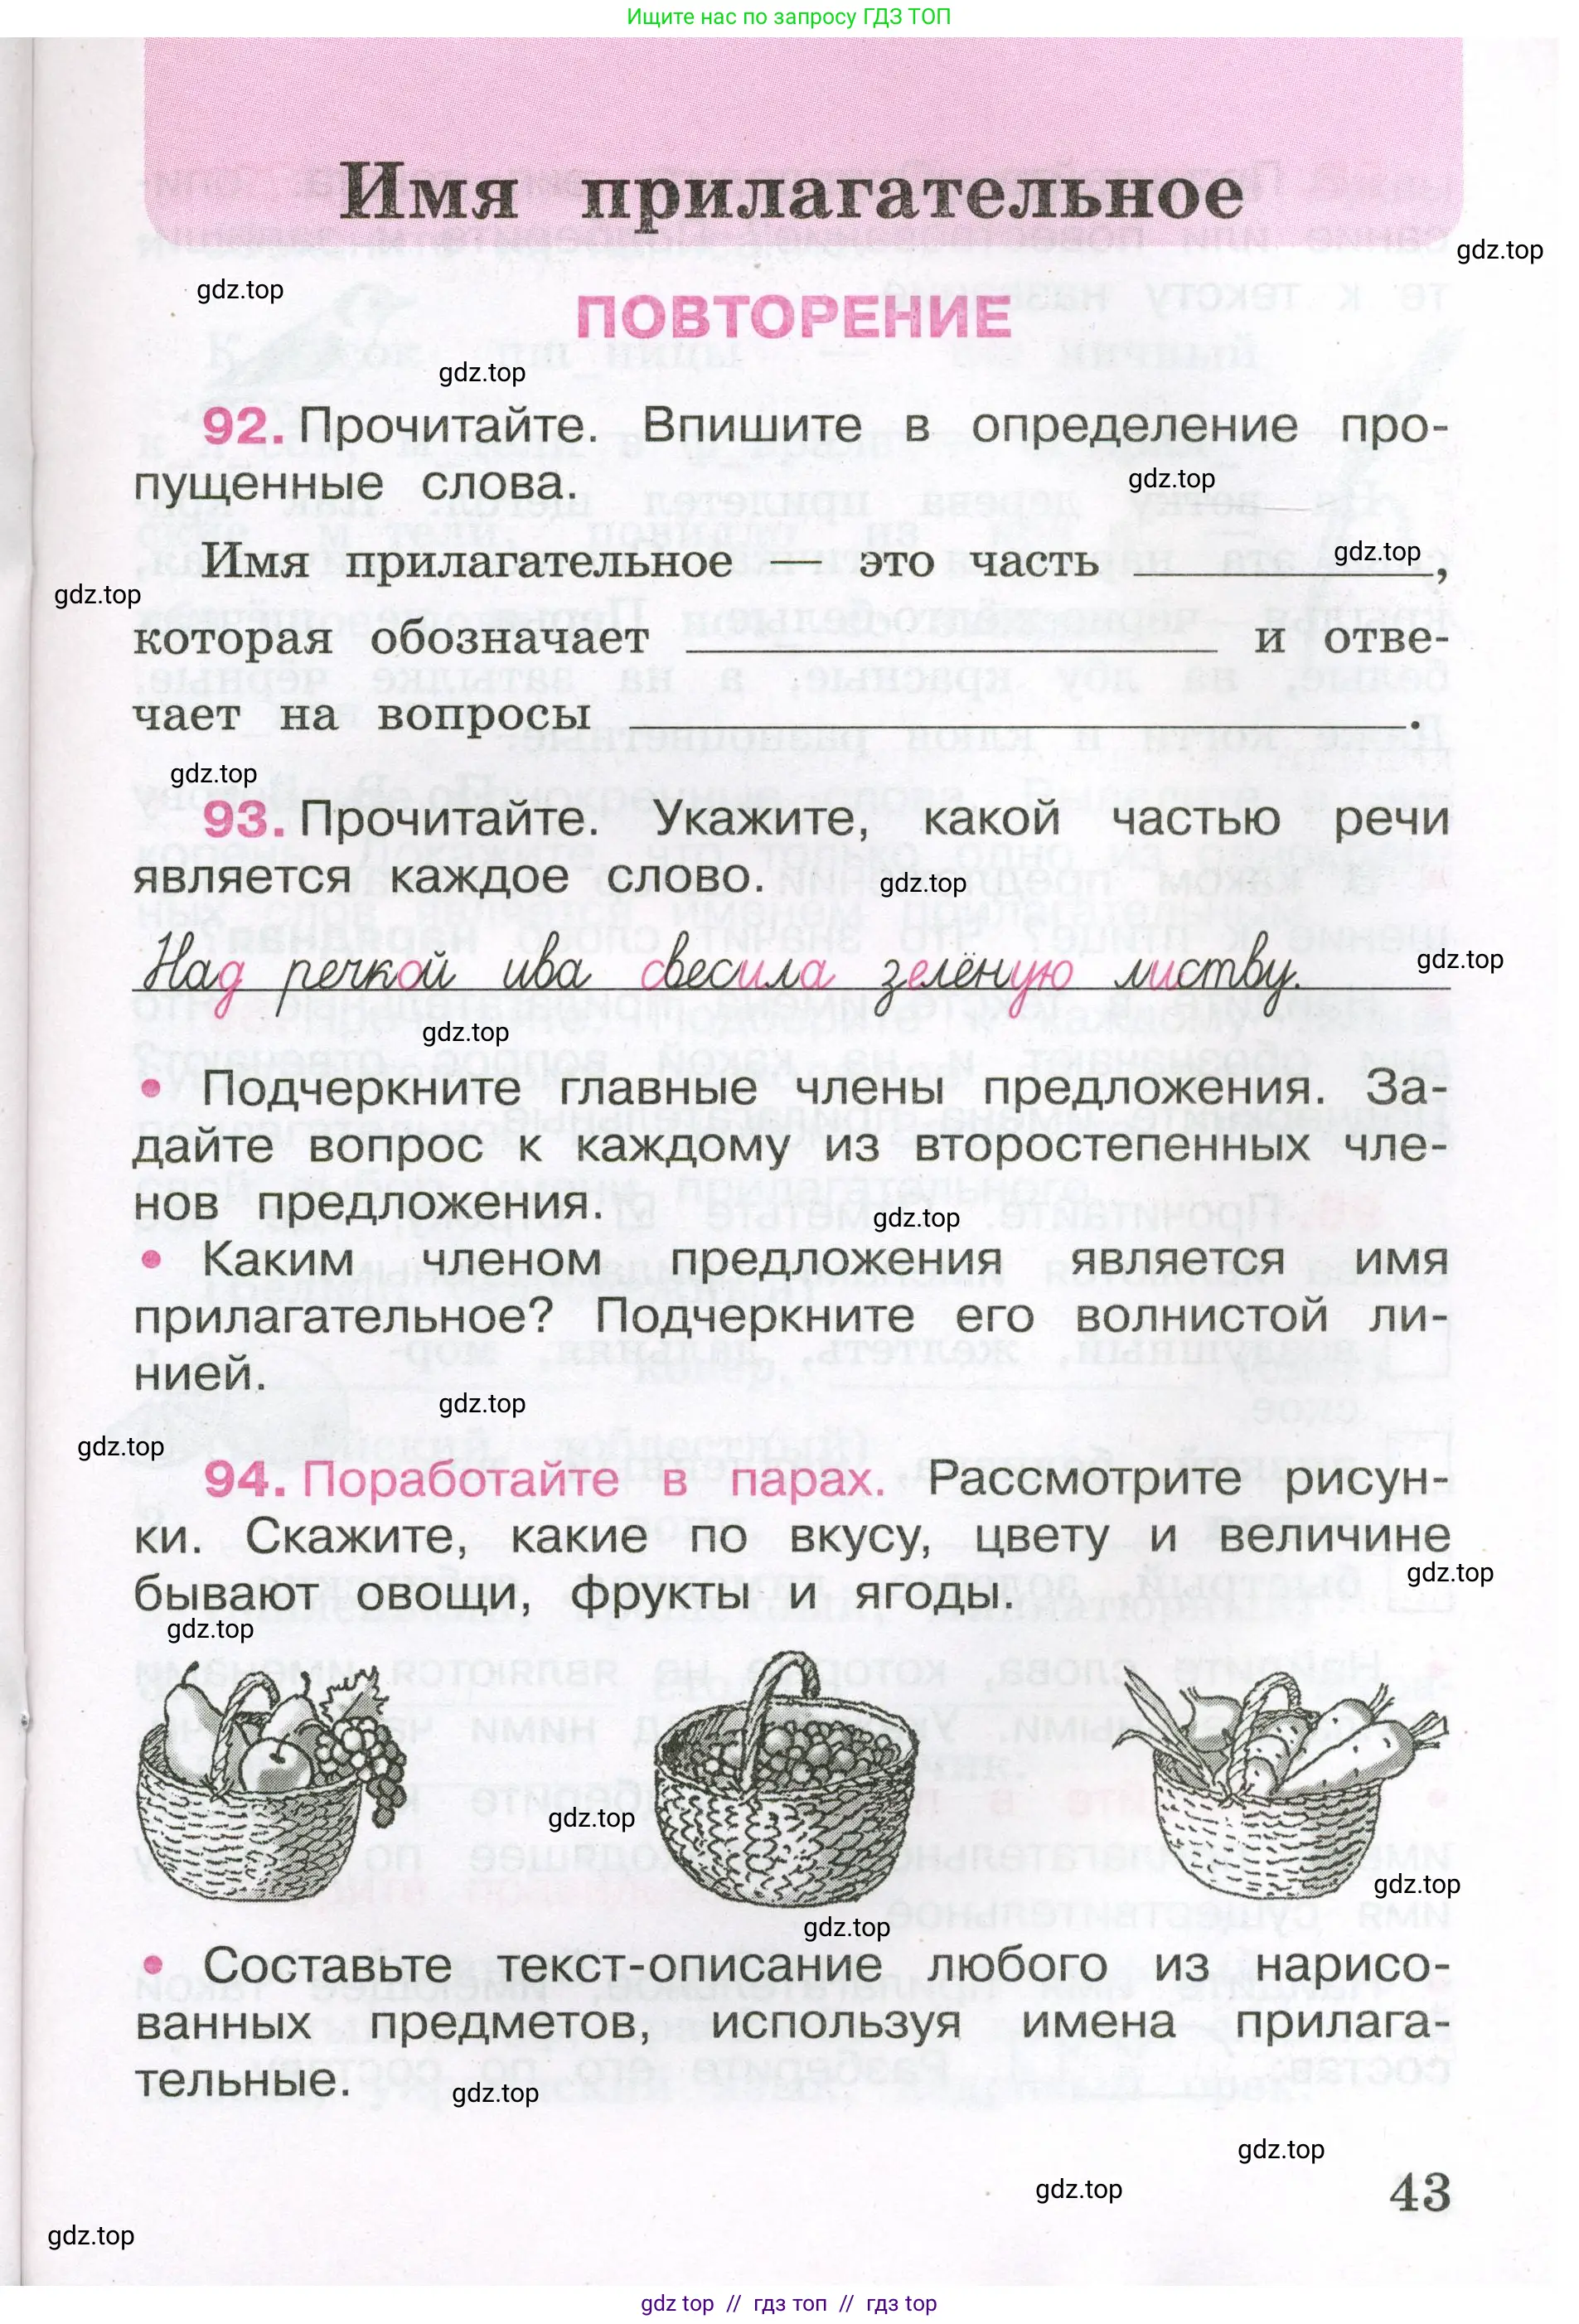 Ищите нас по запросу ГДЗ ТОП
Имя прилагательное
gdz.top
gdz.top
ПОВТОРЕНИЕ
gdz.top
92. Прочитайте. Впишите в определение про-
пущенные слова.
gdz.top
Имя прилагательное — это часть ____________,
gdz.top
gdz.top
которая обозначает ____________ и отве-
чает на вопросы ____________.
gdz.top
93. Прочитайте. Укажите, какой частью речи
является каждое слово.
gdz.top
Над речкой ива свесила зелёную листву.
gdz.top
gdz.top
• Подчеркните главные члены предложения. За-
дайте вопрос к каждому из второстепенных чле-
нов предложения.
gdz.top
• Каким членом предложения является имя
прилагательное? Подчеркните его волнистой ли-
нией.
gdz.top
gdz.top
94. Поработайте в парах. Рассмотрите рисун-
ки. Скажите, какие по вкусу, цвету и величине
бывают овощи, фрукты и ягоды.
gdz.top
gdz.top
gdz.top
gdz.top
gdz.top
• Составьте текст-описание любого из нарисо-
ванных предметов, используя имена прилага-
тельные.
gdz.top
gdz.top
gdz.top
43
gdz.top
gdz top // гдз топ // гдз top